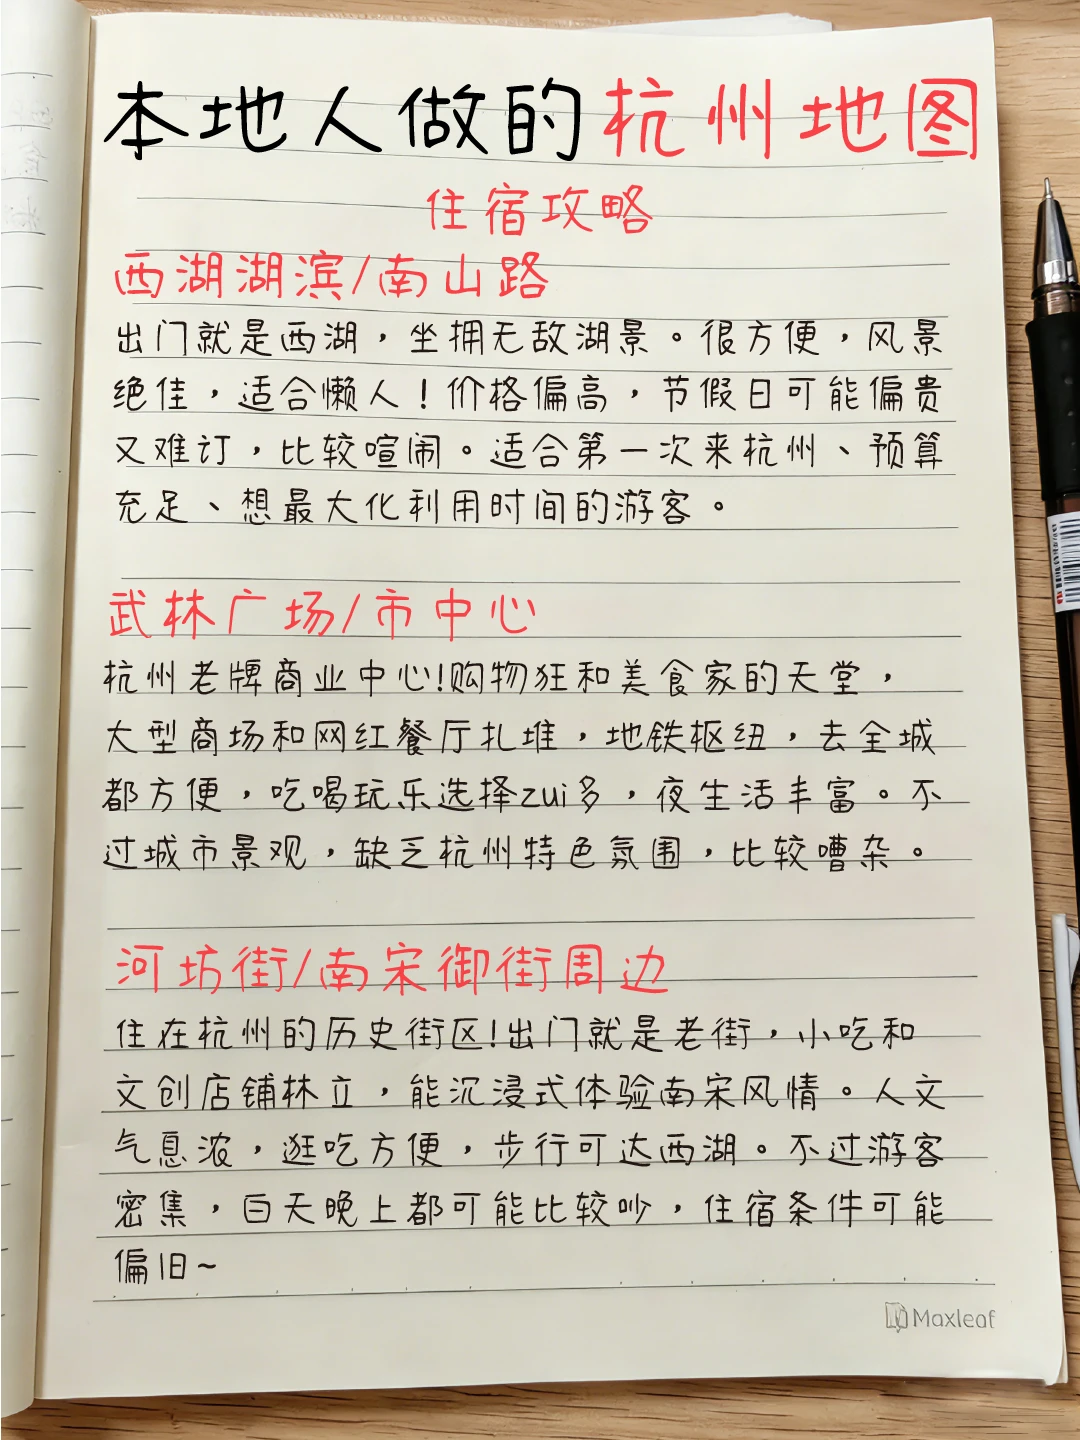 本地人做的杭州地图
住宿攻略
西湖湖滨/南山路
出门就是西湖，坐拥无敌湖景。很方便，风景
绝佳，适合懒人！价格偏高，节假日可能偏贵
又难订，比较喧闹。适合第一次来杭州、预算
充足、想最大化利用时间的游客。
武林广场/市中心
杭州老牌商业中心!购物狂和美食家的天堂，
大型商场和网红餐厅扎堆，地铁枢纽，去全城
都方便，吃喝玩乐选择zui多，夜生活丰富。不
过城市景观，缺乏杭州特色氛围，比较嘈杂。
河坊街/南宋御街周边
住在杭州的历史街区!出门就是老街，小吃和
文创店铺林立，能沉浸式体验南宋风情。人文
气息浓，逛吃方便，步行可达西湖。不过游客
密集，白天晚上都可能比较吵，住宿条件可能
偏旧~
Maxleaf